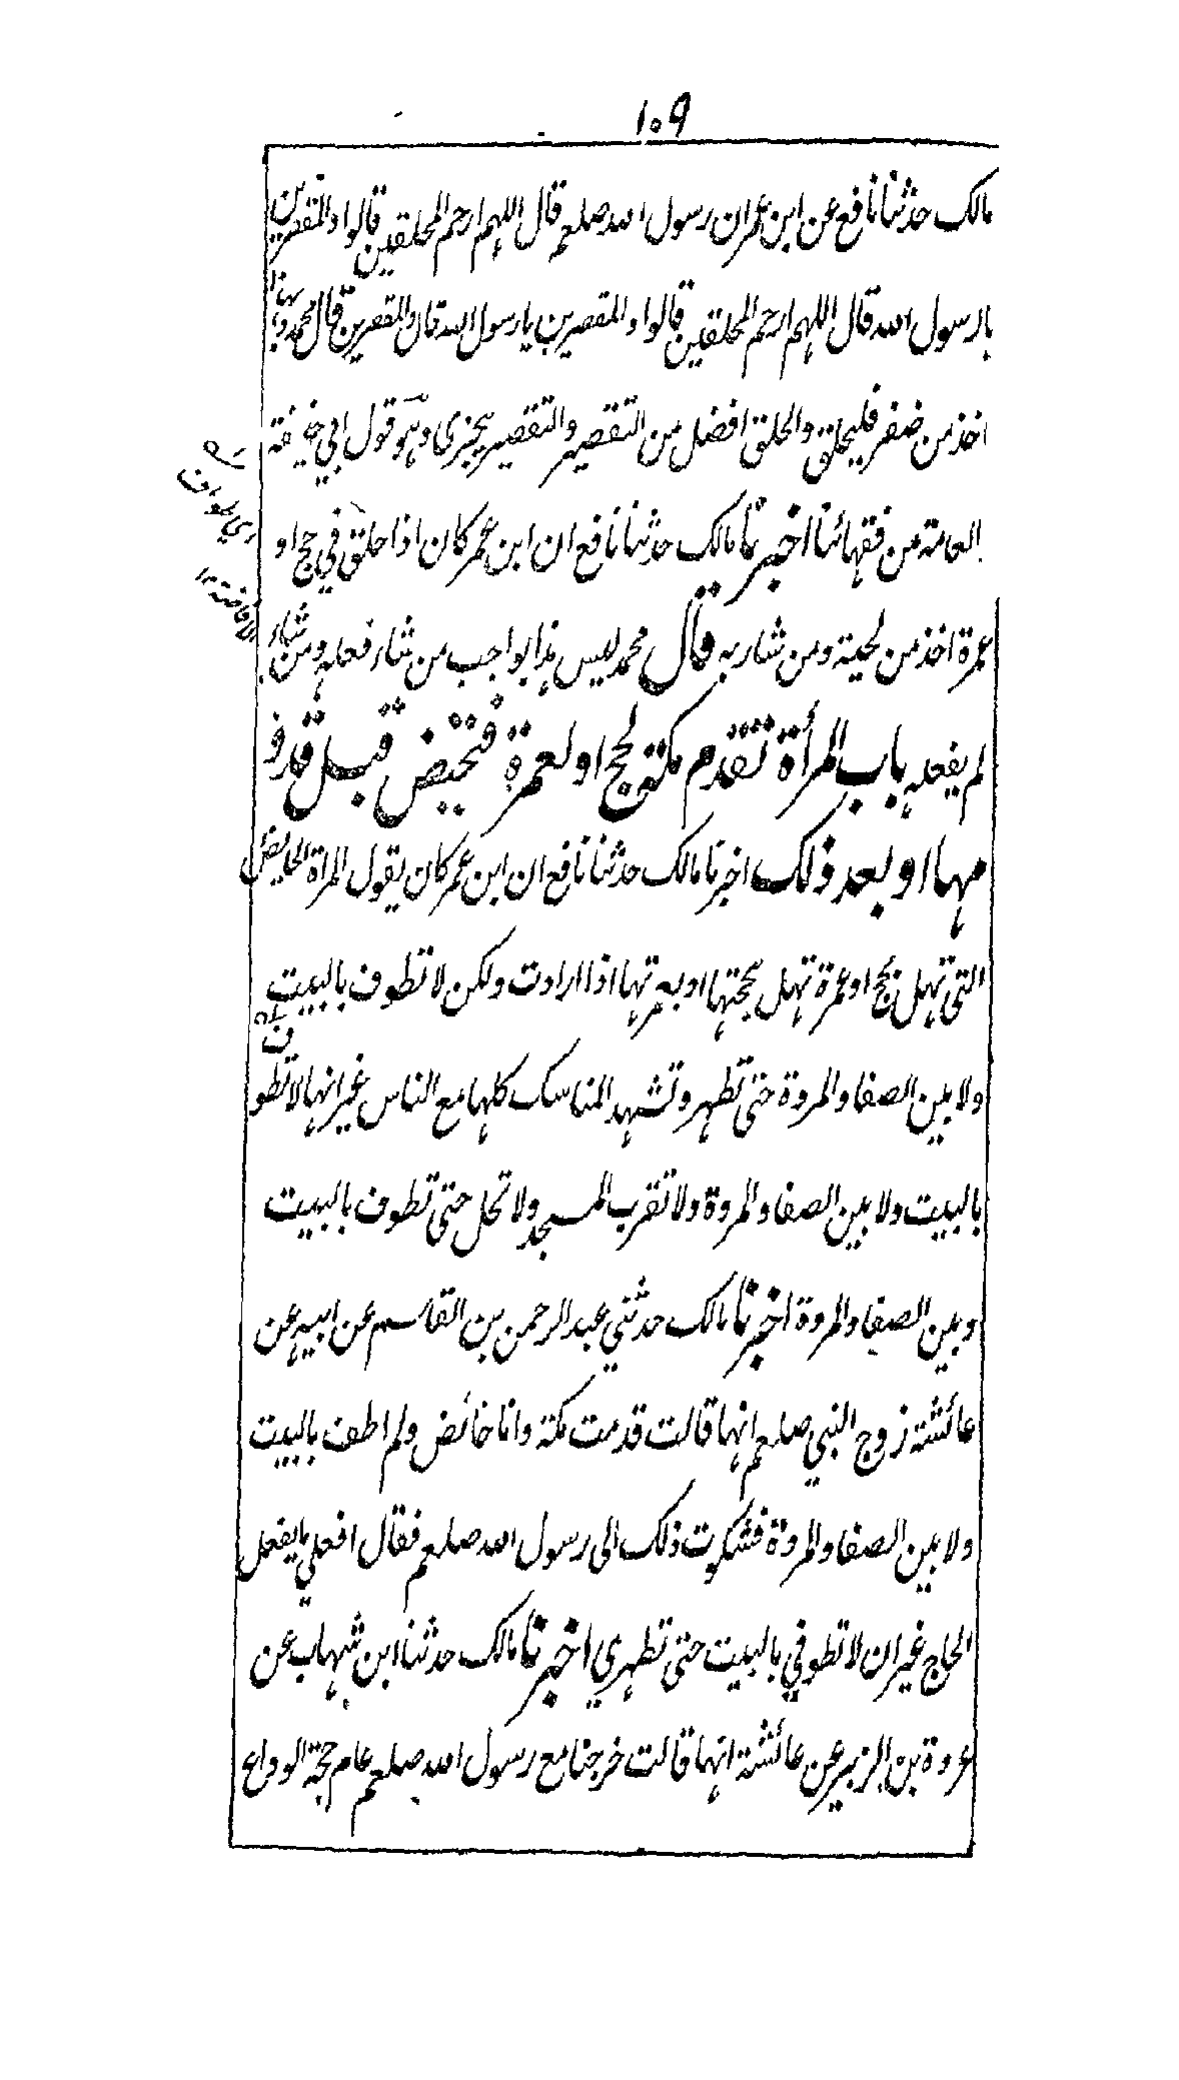 ١٠٩
مالك حدثنا نافع عن ابن عمر ان رسول الله صلعم قال اللهم ارحم المحلقين قالوا والمقصرين
يا رسول الله قال اللهم ارحم المحلقين قالوا والمقصرين يا رسول الله قال والمقصرين قال محمد وبهذا
اخذ من ضفر فليحلق والحلق افضل من التقصير والتقصير يجزى وهو قول ابي حنيفة
العامة من فقهائنا اخبرنا مالك حدثنا نافع ان ابن عمر كان اذا حلق في حج او
عمرة اخذ من لحية ومن شاربه قال محمد ليس هذا بواجب من شاء فعله ومن شاء
لم يفعله باب المرأة تقدم مكة لحج او لعمرة فتحيض قبل قدو
مها او بعد ذلك اخبرنا مالك حدثنا نافع ان ابن عمر كان يقول المرأة الحايض
التي تهل بحج او عمرة تهل بحجتها او بعمرتها اذا ارادت ولكن لا تطوف بالبيت
ولا بين الصفا والمروة حتى تطهر وتشهد المناسك كلها مع الناس غير انها لا تطو
ف
بالبيت ولا بين الصفا والمروة ولا تقرب المسجد ولا تحل حتى تطوف بالبيت
وبين الصفا والمروة اخبرنا مالك حدثني عبد الرحمن بن القاسم عن ابيه عن
عائشة زوج النبي صلعم انها قالت قدمت مكة وانا حائض ولم اطف بالبيت
ولا بين الصفا والمروة فشكوت ذلك الى رسول الله صلعم فقال افعلي ما يفعل
الحاج غير ان لا تطوفي بالبيت حتى تطهري اخبرنا مالك حدثنا ابن شهاب عن
عروة بن الزبير عن عائشة انها قالت خرجنا مع رسول الله صلعم عام حجة الوداع